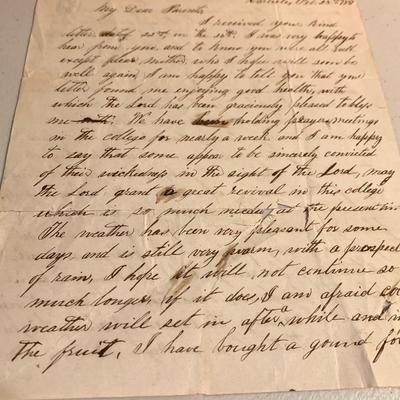 My Dear Parents
I received your kind
letter of 22nd, in the I was very happy to
hear from you and to know you were all well
except dear mother, who I hope will soon be
well again, I am happy to tell you that your
letter found me enjoying good health, with
which the Lord has been graciously pleased to bless
me We have been holding prayer meetings
in the college for nearly a week and I am happy
to say that some appear to be sincerely convicted
of their wickedness in the sight of the Lord, may
the Lord grant a great revival in this college
which is so much needed at the present time
The weather has been very pleasant for some
days and is still very warm, with a prospect
of rain, I hope it will not continue so
much longer, if it does, I am afraid cold
weather will set in after a while and
the fruit, I have bought a gound for